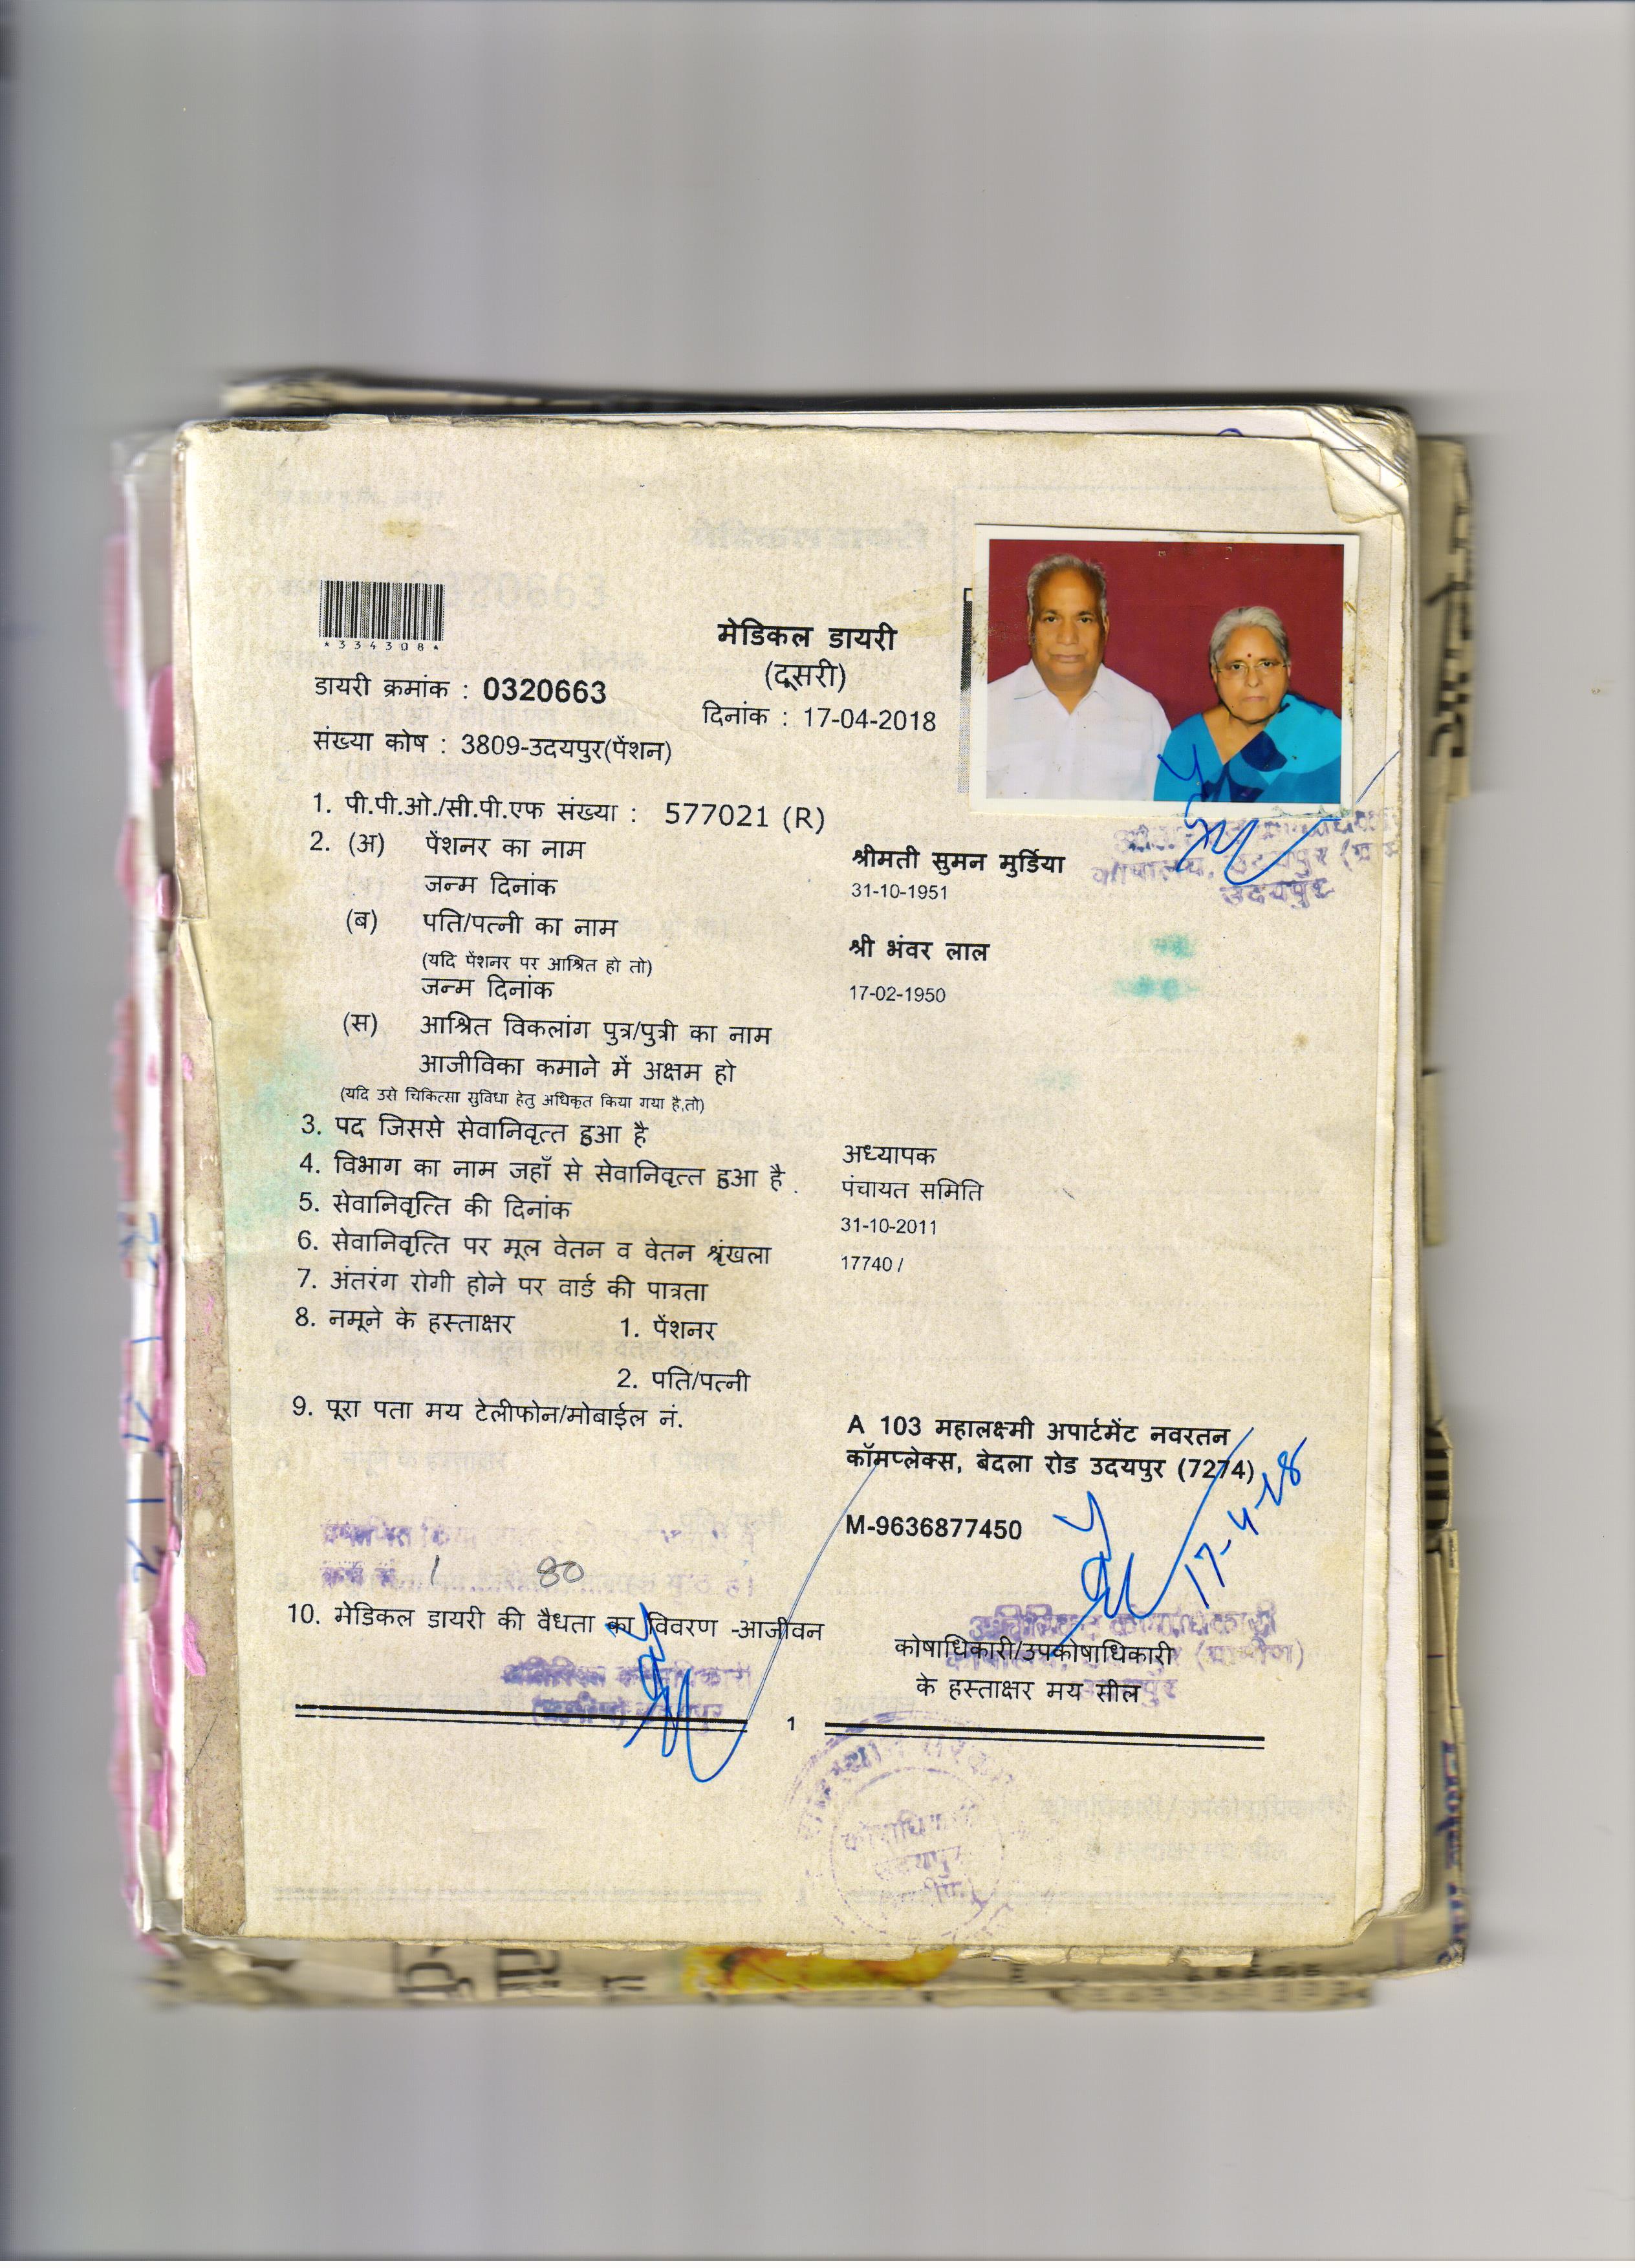 *334308*
मेडिकल डायरी
(दूसरी)
डायरी क्रमांक : 0320663
दिनांक : 17-04-2018
संख्या कोष : 3809-उदयपुर(पेंशन)
1. पी.पी.ओ./सी.पी.एफ संख्या : 577021 (R)
2. (अ) पेंशनर का नाम श्रीमती सुमन मुर्डिया
जन्म दिनांक 31-10-1951
(ब) पति/पत्नी का नाम श्री भंवर लाल
(यदि पेंशनर पर आश्रित हो तो)
जन्म दिनांक 17-02-1950
(स) आश्रित विकलांग पुत्र/पुत्री का नाम
आजीविका कमाने में अक्षम हो
(यदि उसे चिकित्सा सुविधा हेतु अधिकृत किया गया है,तो)
3. पद जिससे सेवानिवृत्त हुआ है अध्यापक
4. विभाग का नाम जहाँ से सेवानिवृत्त हुआ है . पंचायत समिति
5. सेवानिवृत्ति की दिनांक 31-10-2011
6. सेवानिवृत्ति पर मूल वेतन व वेतन श्रृंखला 17740 /
7. अंतरंग रोगी होने पर वार्ड की पात्रता
8. नमूने के हस्ताक्षर 1. पेंशनर
2. पति/पत्नी
9. पूरा पता मय टेलीफोन/मोबाईल नं.
A 103 महालक्ष्मी अपार्टमेंट नवरतन
कॉमप्लेक्स, बेदला रोड उदयपुर (7274)
M-9636877450
17-4-18
1 80
10. मेडिकल डायरी की वैधता का विवरण -आजीवन
कोषाधिकारी/उपकोषाधिकारी
के हस्ताक्षर मय सील
1
उदयपुर